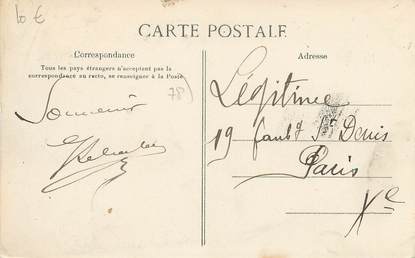 10 €
CARTE POSTALE
Correspondance
Tous les pays étrangers n'acceptent pas la
correspondance au recto, se renseigner à la Poste
Adresse
(78)
Souvenir
Légitimee
19 faubg St Denis
Paris
Xe